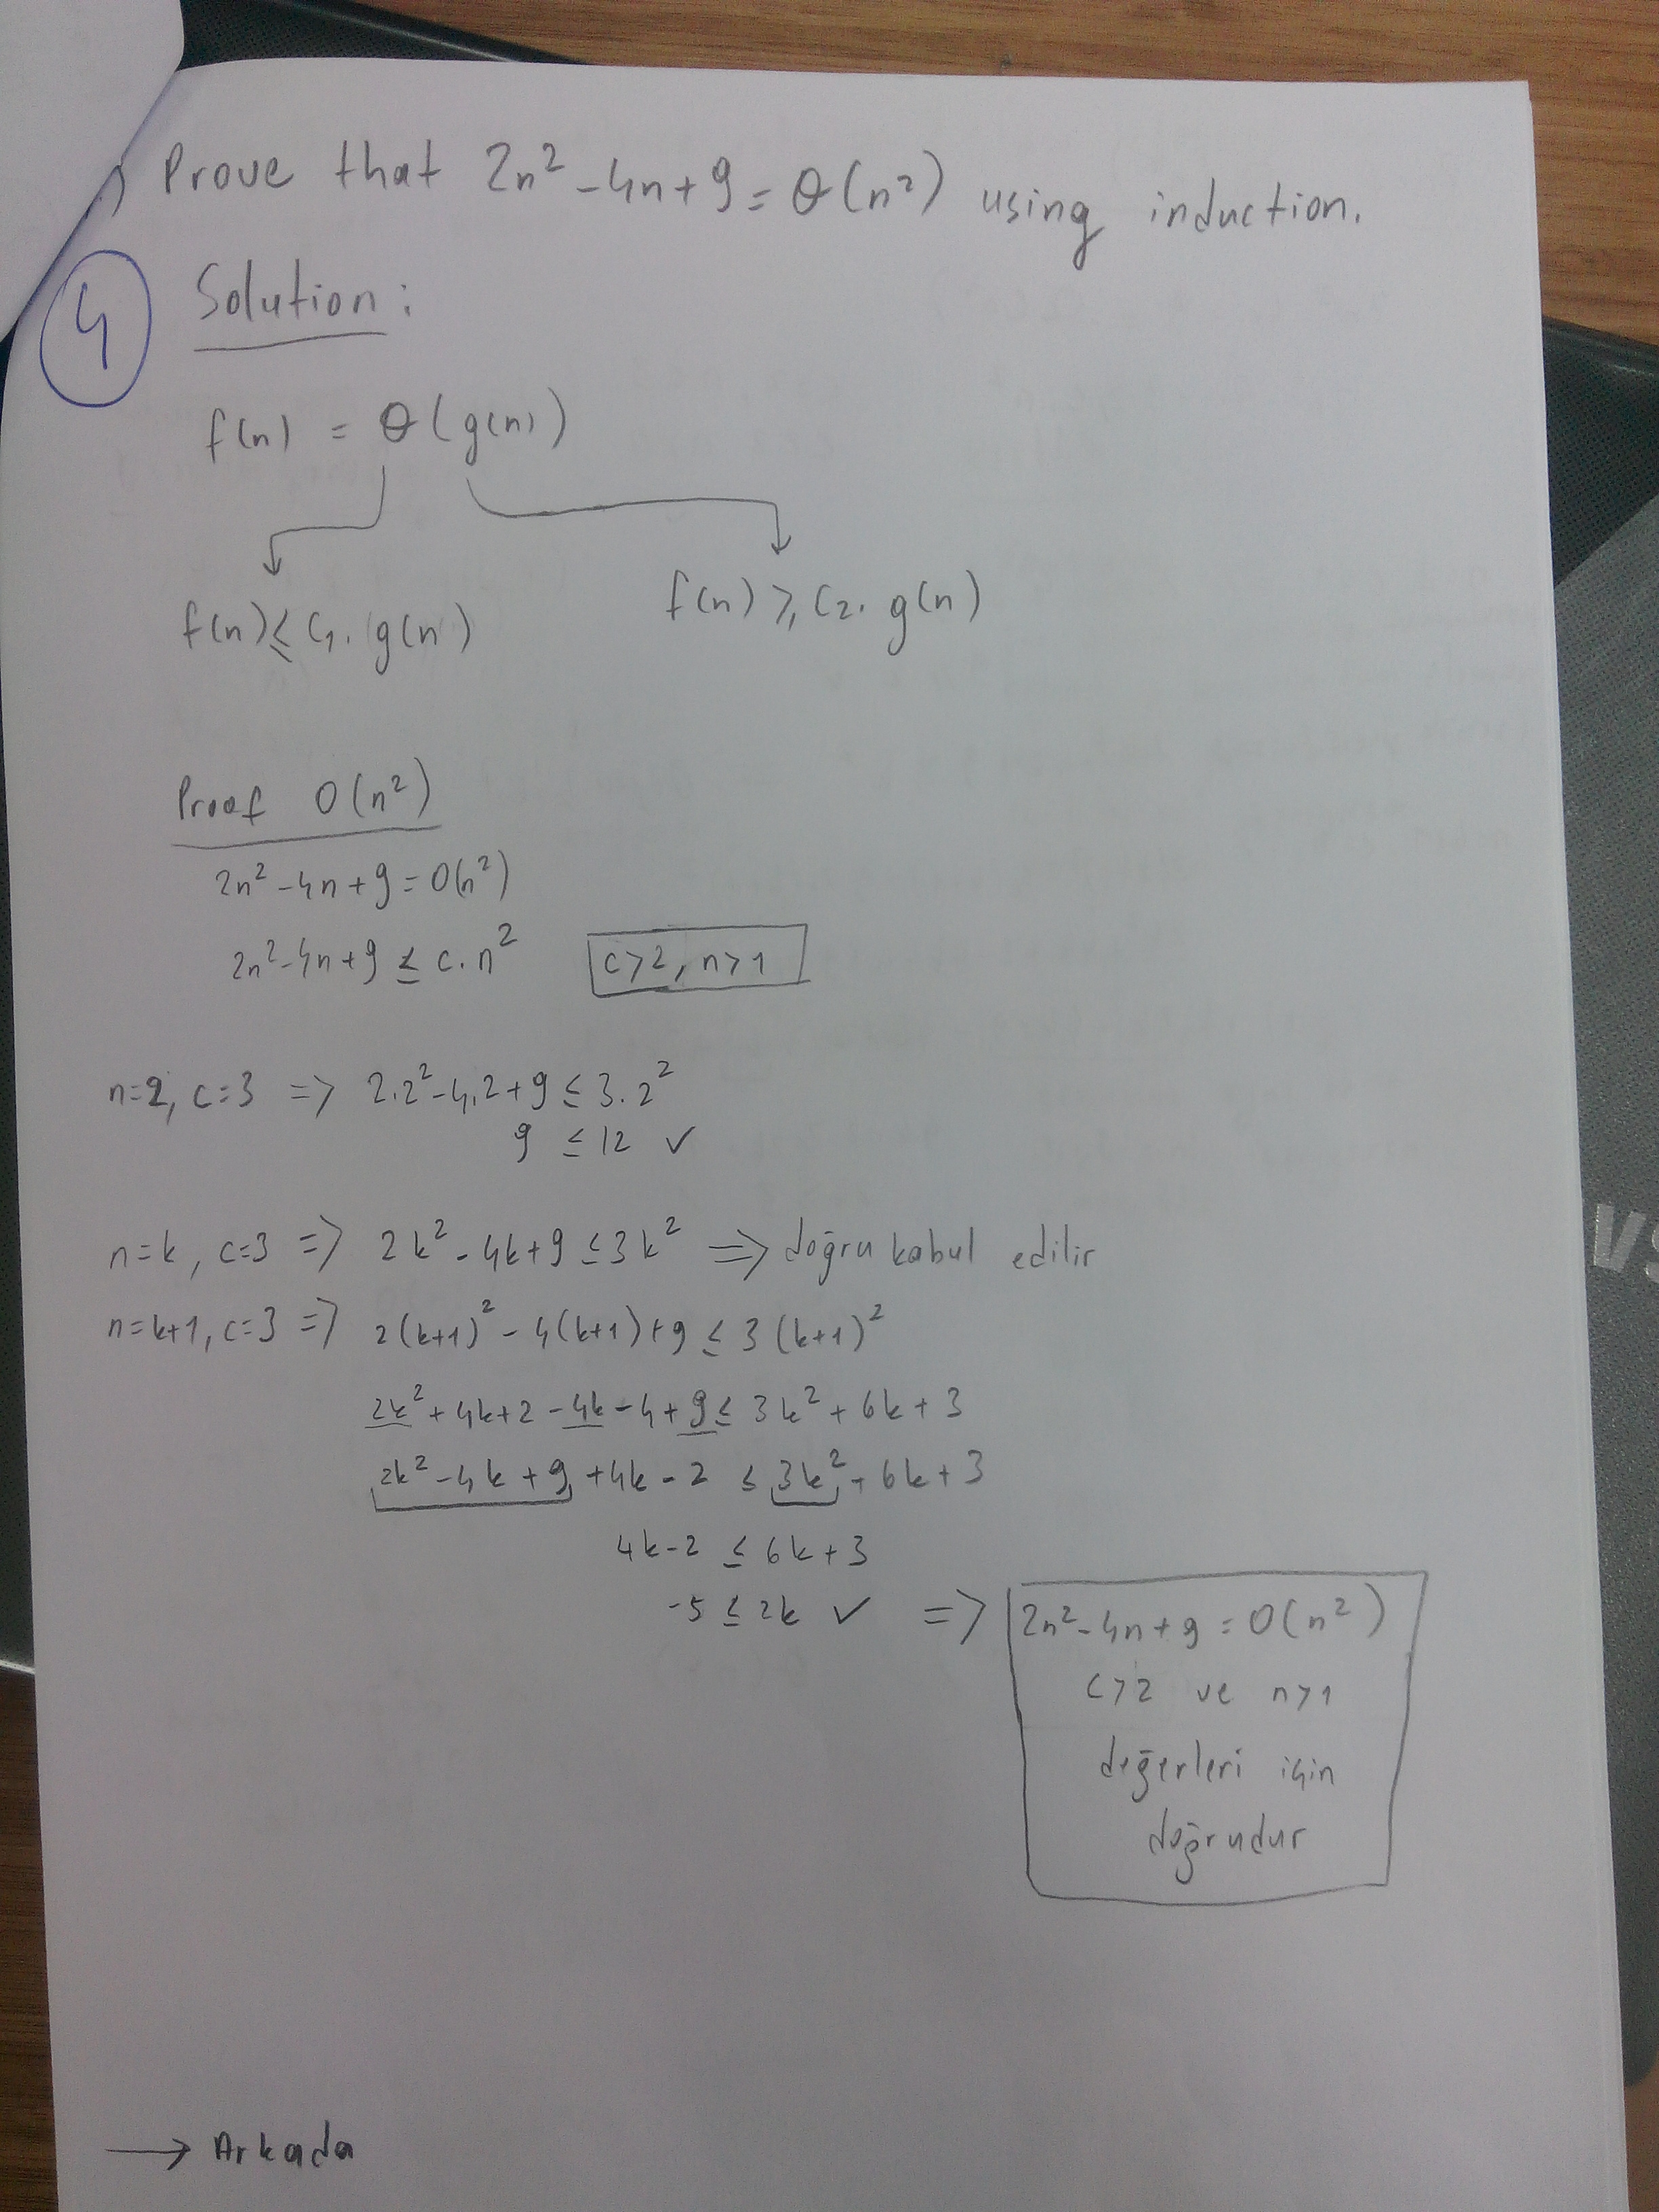 ) Prove that 2n² - 4n + 9 = Θ(n²) using induction.
4
Solution:
f(n) = Θ(g(n))
f(n) ≤ c₁. g(n)
f(n) ≥ c₂. g(n)
Proof O(n²)
2n² - 4n + 9 = O(n²)
2n² - 4n + 9 ≤ c.n²
c>2, n>1
n=2, c=3 => 2.2² - 4.2 + 9 ≤ 3.2²
9 ≤ 12 ✓
n=k, c=3 => 2k² - 4k + 9 ≤ 3k² => doğru kabul edilir
n=k+1, c=3 => 2(k+1)² - 4(k+1) + 9 ≤ 3(k+1)²
2k² + 4k + 2 - 4k - 4 + 9 ≤ 3k² + 6k + 3
2k² - 4k + 9 + 4k - 2 ≤ 3k² + 6k + 3
4k - 2 ≤ 6k + 3
-5 ≤ 2k ✓ =>
2n² - 4n + 9 = O(n²)
c>2 ve n>1
değerleri için
doğrudur
→ Arkada